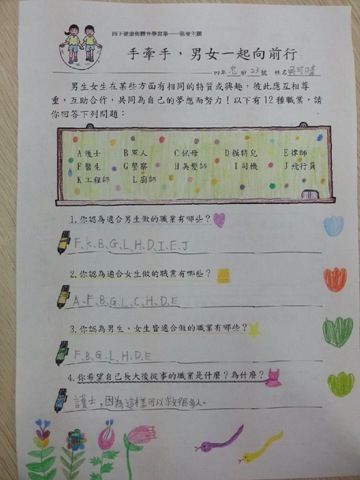 四下健康與體育學習單——個案主題
手牽手，男女一起向前行
四年忠班23號 姓名
男生女生在某些方面有相同的特質或興趣，彼此應互相尊
重，互助合作，共同為自己的夢想而努力！以下有12種職業，請
你回答下列問題：
A護士 B軍人 C保母 D模特兒 E律師
F醫生 G警察 H美髮師 I司機 J飛行員
K工程師 L廚師
1.你認為適合男生做的職業有哪些？
F、K、B、G、L、H、D、I、E、J
2.你認為適合女生做的職業有哪些？
A、F、B、G、L、C、H、D、E
3.你認為男生、女生皆適合做的職業有哪些？
F、B、G、L、H、D、E
4.你希望自己長大後從事的職業是什麼？為什麼？
護士，因為這樣可以救很多人。